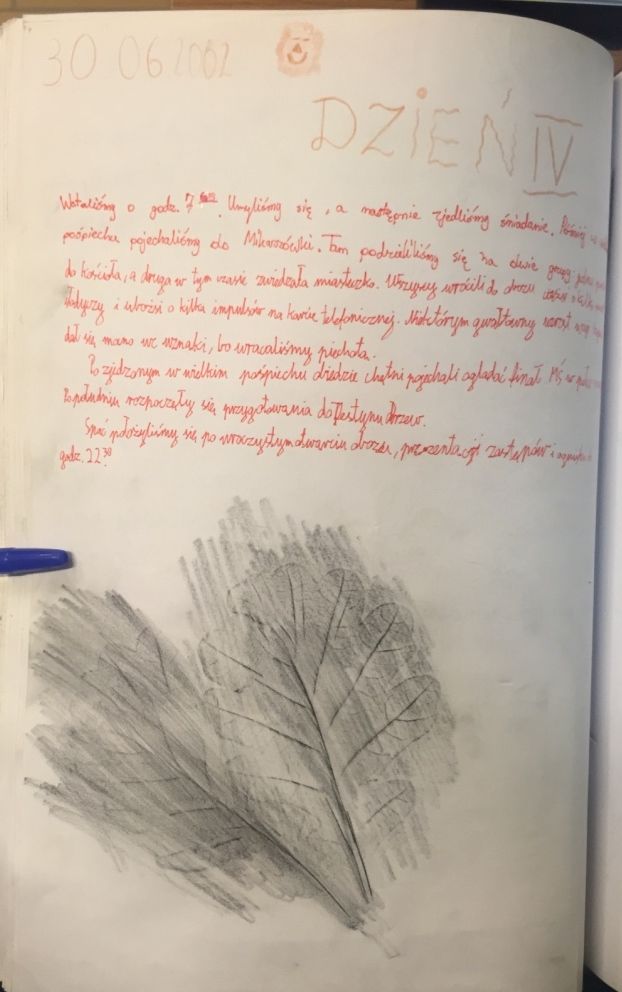 30 06 2002
DZIEŃ IV
Wstaliśmy o godz. 7. Umyliśmy się, a następnie zjedliśmy śniadanie.
pośpiechu pojechaliśmy do Mikaszówki. Tam podzieliliśmy się na dwie grupy: jedna
do kościoła, a druga w tym czasie zwiedzała miasteczko. Wszyscy wrócili do obozu
słodyczy i ubożsi o kilka impulsów na karcie telefonicznej. Niektórym gwałtowny wzrost wagi
dał się mano we wznaki, bo wracaliśmy piechotą.
Po zjedzonym w wielkim pośpiechu obiedzie chętni pojechali oglądać finał MŚ w
Po południu rozpoczęły się przygotowania do Festynu Drzew.
Spać położyliśmy się po uroczystym otwarciu obozu, prezentacji zastępów i
godz. 22.30